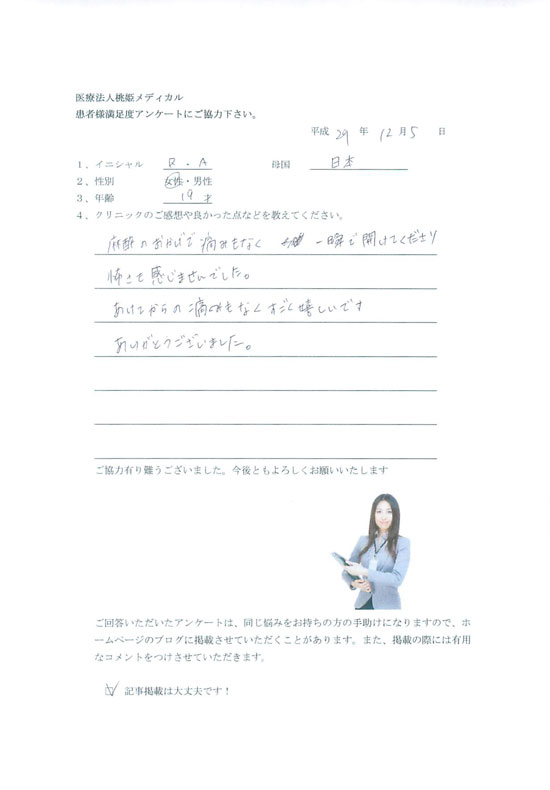 医療法人桃姫メディカル
患者様満足度アンケートにご協力下さい。
平成 29 年 12 月 5 日
1、イニシャル R・A 母国 日本
2、性別 女性・男性
3、年齢 19 才
4、クリニックのご感想や良かった点などを教えてください。
麻酔のおかげで痛みもなく 一瞬で開けてくださり
怖さも感じませんでした。
あけてからの痛みもなくすごく嬉しいです
ありがとうございました。
ご協力有り難うございました。今後ともよろしくお願いいたします
ご回答いただいたアンケートは、同じ悩みをお持ちの方の手助けになりますので、ホ
ームページのブログに掲載させていただくことがあります。また、掲載の際には有用
なコメントをつけさせていただきます。
記事掲載は大丈夫です！